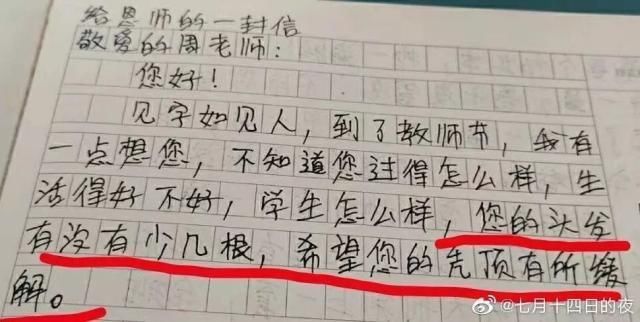 给恩师的一封信
敬爱的周老师:
您好!
见字如见人,到了教师节,我有
一点想您,不知道您过得怎么样,生
活得好不好,学生怎么样,您的头发
有没有少几根,希望您的秃顶有所缓
解。
@七月十四日的夜